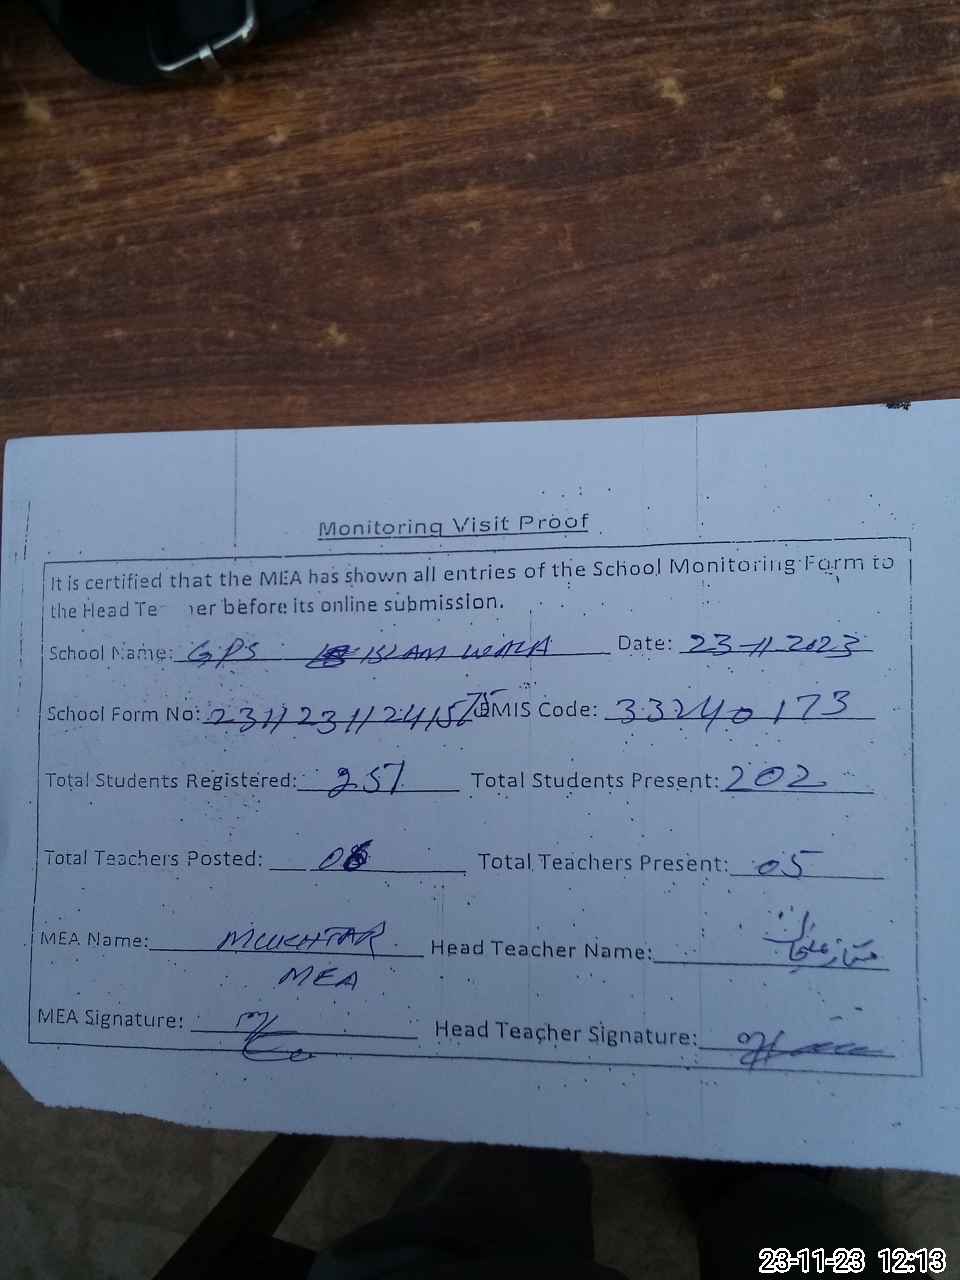 Monitoring Visit Proof
It is certified that the MEA has shown all entries of the School Monitoring Form to
the Head Te her before its online submission.
School Name: GPS ISLAM WALA Date: 23-11-2023
School Form No: EMIS Code: 33240173
Total Students Registered: 257 Total Students Present: 202
Total Teachers Posted: 06 Total Teachers Present: 05
MEA Name: MUKHTAR Head Teacher Name:
MEA
MEA Signature: Head Teacher Signature:
23-11-23 12:13